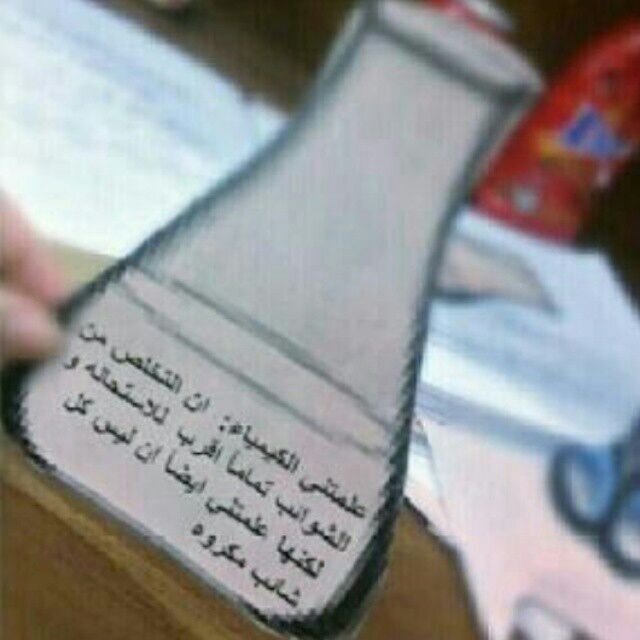 علمتني الكيمياء: ان التخلص من
الشوائب تماماً اقرب للاستحاله و
لكنها علمتني ايضا ان ليس كل
شائب مكروه